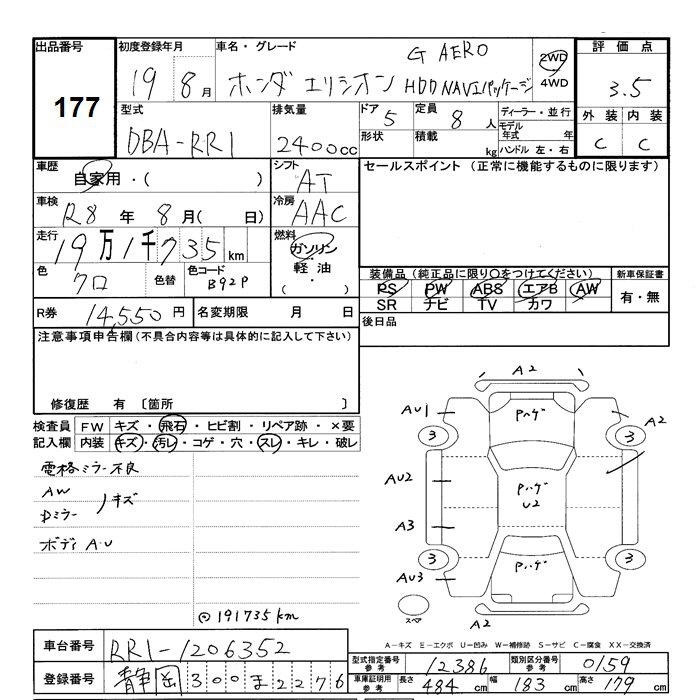 出品番号
177
初度登録年月
19 8月
車名・グレード
G AERO
ホンダ エリシオン HDD NAVIパッケージ
2WD
4WD
評価点
3.5
外装 内装
C C
型式
DBA-RR1
排気量
2400cc
ドア
5
定員
8人
形状
積載
kg
ディーラー・並行
モデル年式 年
ハンドル 左・右
車歴
自家用・( )
シフト
AT
セールスポイント (正常に機能するものに限ります)
車検
R8年 8月( 日)
冷房
AAC
走行
19万1千735km
燃料
ガソリン
軽油
( ・ )
色
クロ
色替
色コード
B92P
装備品 (純正品に限り○をつけてください)
PS PW ABS エアB AW
SR ナビ TV カワ
新車保証書
有・無
R券
14,550円
名変期限 月 日
後日品
注意事項申告欄(不具合内容等は具体的に記入して下さい)
修復歴 有 〔箇所 〕
検査員記入欄
FW キズ・飛石・ヒビ割・リペア跡・×要
内装 キズ・汚レ・コゲ・穴・スレ・キレ・破レ
電格ミラー不良
AW
Dミラー
キズ
ボディ A・U
◎191735km
A2
AU1
Pハゲ
A2
3
3
AU2
Pハゲ
U2
A3
3
3
Pハゲ
AU3
スペア
A2
A-キズ E-エクボ U-凹み W-補修跡 S-サビ C-腐食 XX-交換済
車台番号
RR1-1206352
型式指定番号 参考
12386
類別区分番号 参考
0159
登録番号
静岡 300 ま 2276
車庫証明用 参考
長さ 484cm 幅 183cm 高さ 179cm